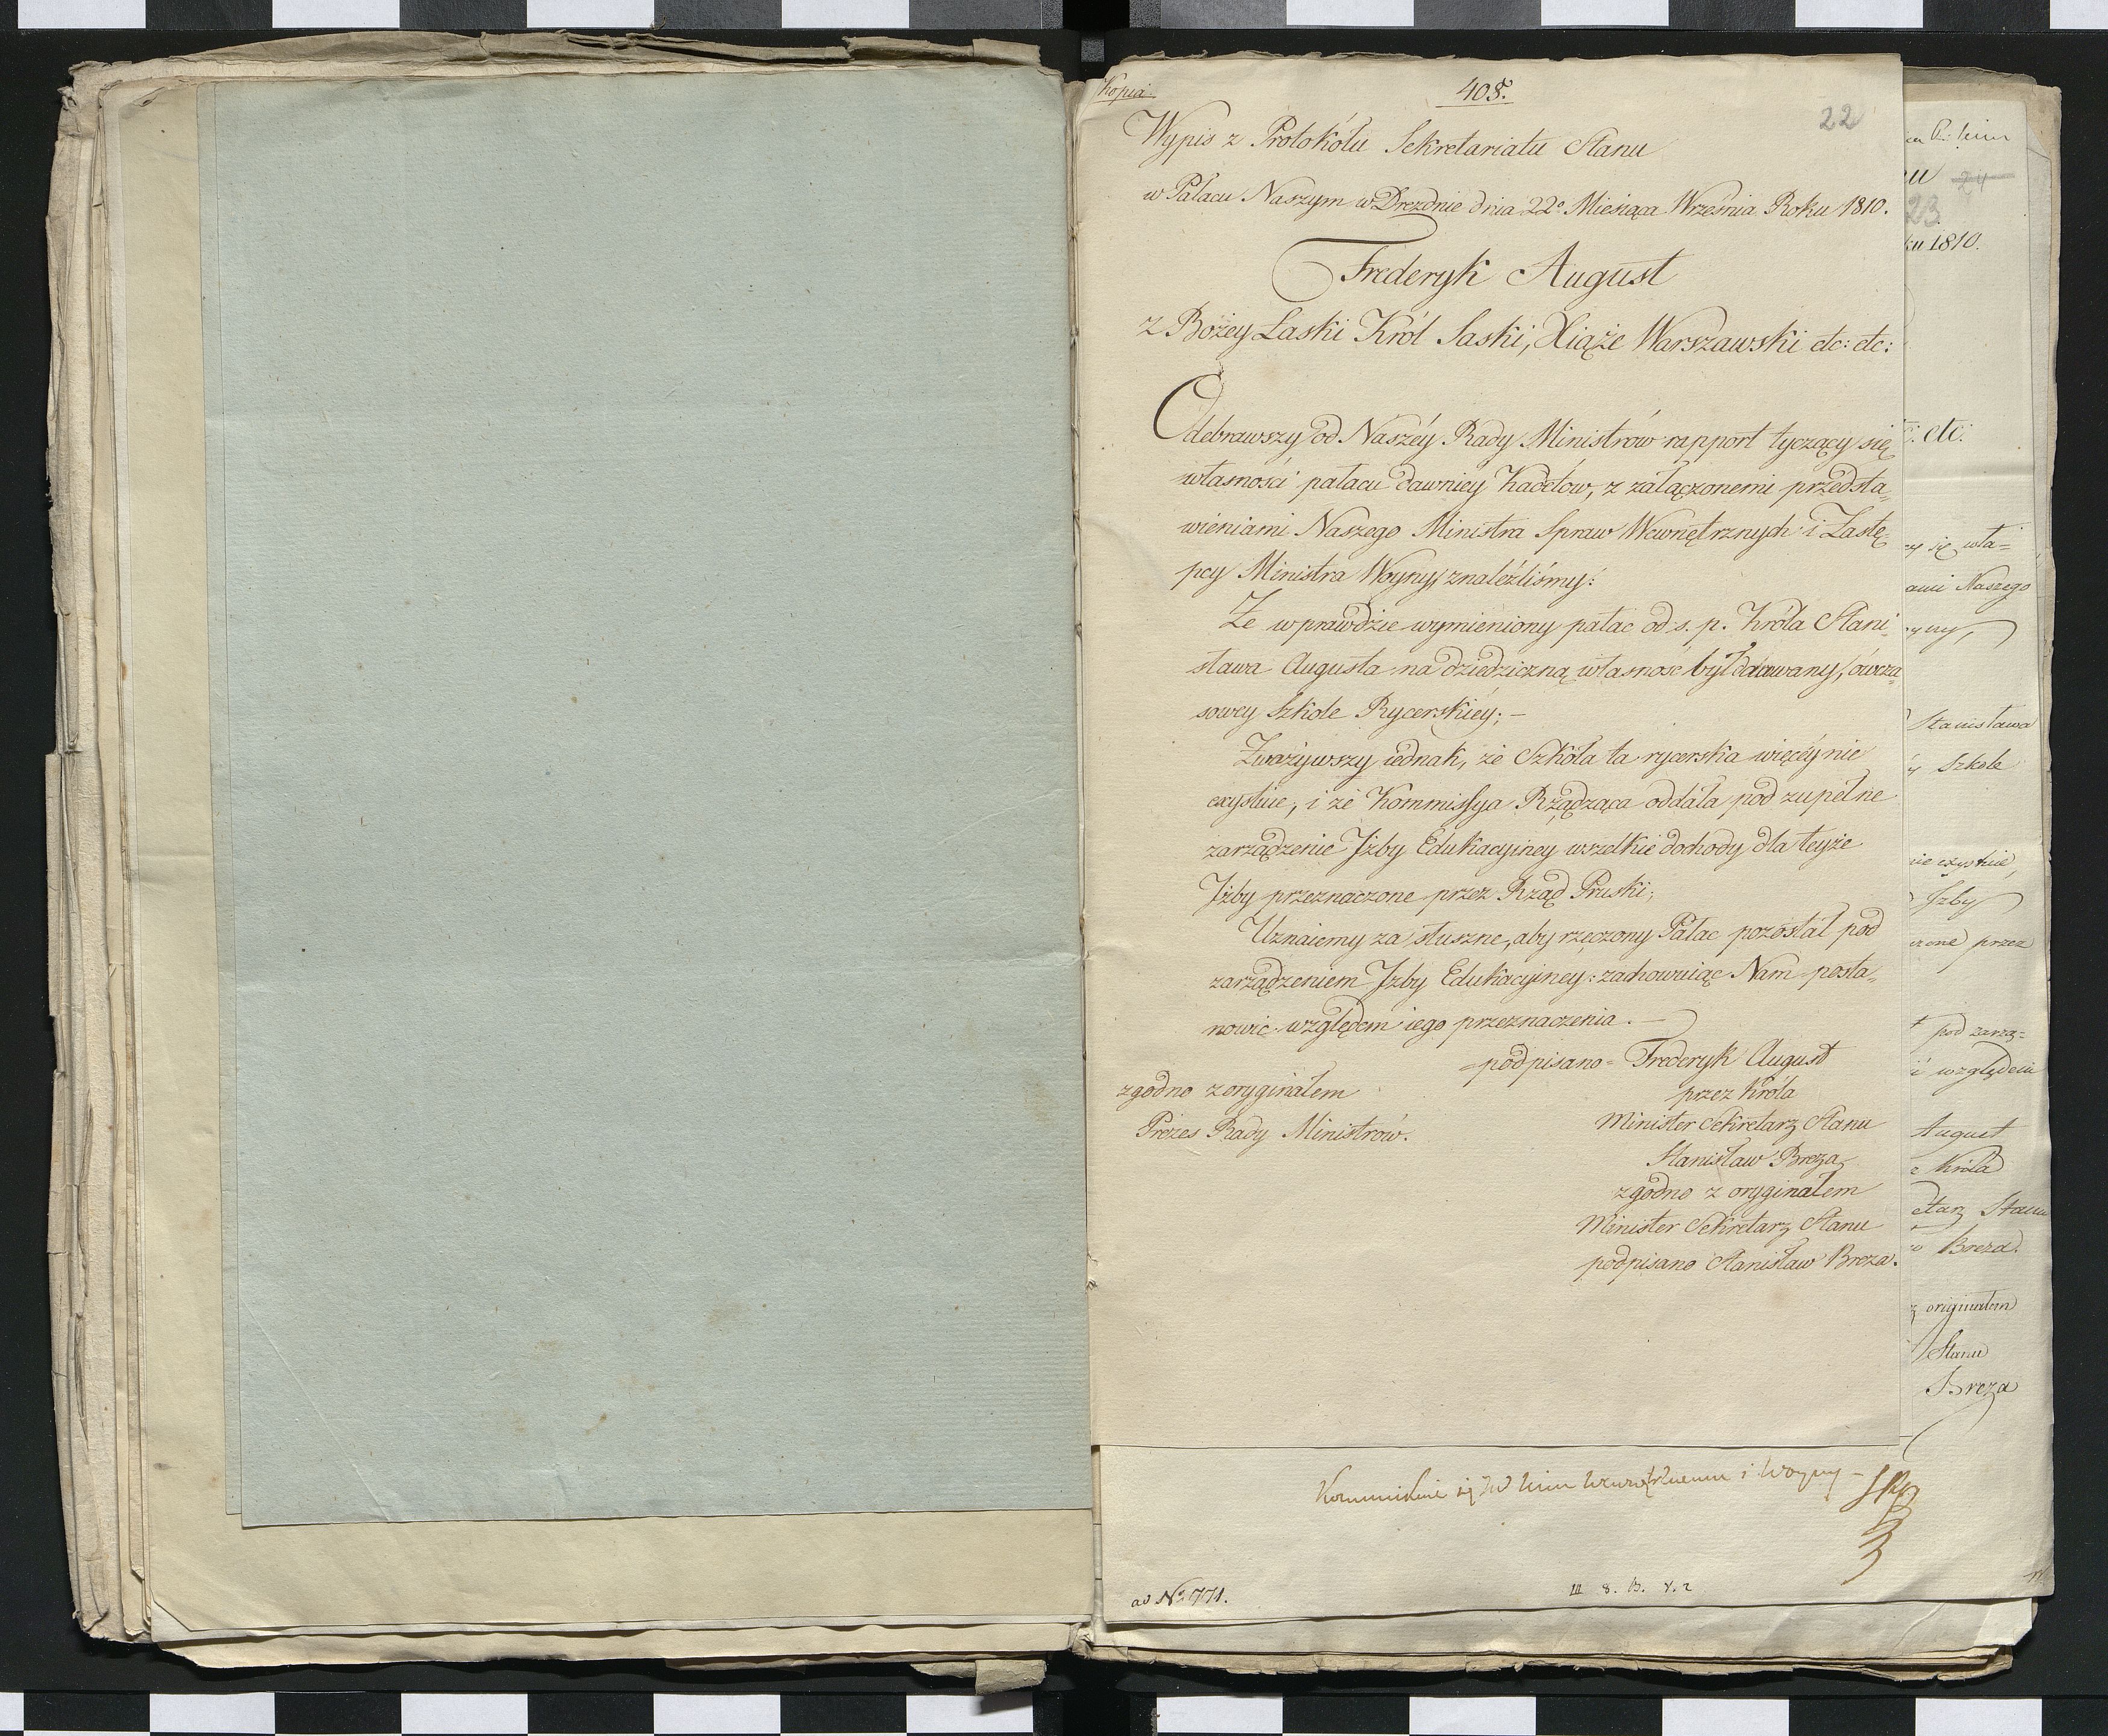 Kopia.
408.
22
Wypis z Protokółu Sekretariatu Stanu
w Pałacu Naszym w Dreznie dnia 22º Miesiąca Września Roku 1810.
Frederyk August
z Bożey Łaski Król Saski, Xiąże Warszawski etc: etc:
Odebrawszy od Naszéy Rady Ministrów rapport tyczący się
własności pałacu dawniéy Kadetów, z załączonemi przedsta=
wieniami Naszego Ministra Spraw Wewnętrznych i Zastę=
pcy Ministra Woyny, znaleźliśmy:
Że wprawdzie wymieniony pałac od s. p. Króla Stani=
sława Augusta na dziedziczną własność był darowany, ówcza=
sowey Szkole Rycerskiéy; –
Zważywszy iednak, że Szkoła ta rycerska więcéy nie
exystuie, i że Kommissya Rządząca oddała pod zupełne
zarządzenie Jzby Edukacyiney wszelkie dochody dla teyże
Jzby przeznaczone przez Rząd Pruski;
Uznaiemy za słuszne, aby rzeczony Pałac pozostał pod
zarządzeniem Jzby Edukacyiney: zachowuiąc Nam posta=
nowić względem iego przeznaczenia. –
=podpisano= Frederyk August
przez Króla
Minister Sekretarz Stanu
Stanisław Breza
zgodno z oryginałem
Minister Sekretarz Stanu
podpisano Stanisław Breza.
zgodno z oryginałem
Prezes Rady Ministrów.
24
23
ku 1810.
etc:
ey się wła=
ami Naszego
Stanisława
Szkole
nie exystuie,
Jzby
przez
pod zarzą=
względem
August
Króla
Stanu
Breza.
originałem
Stanu
Breza
i Woyny –
ad Nº 771.
III 8. B. 8. 2